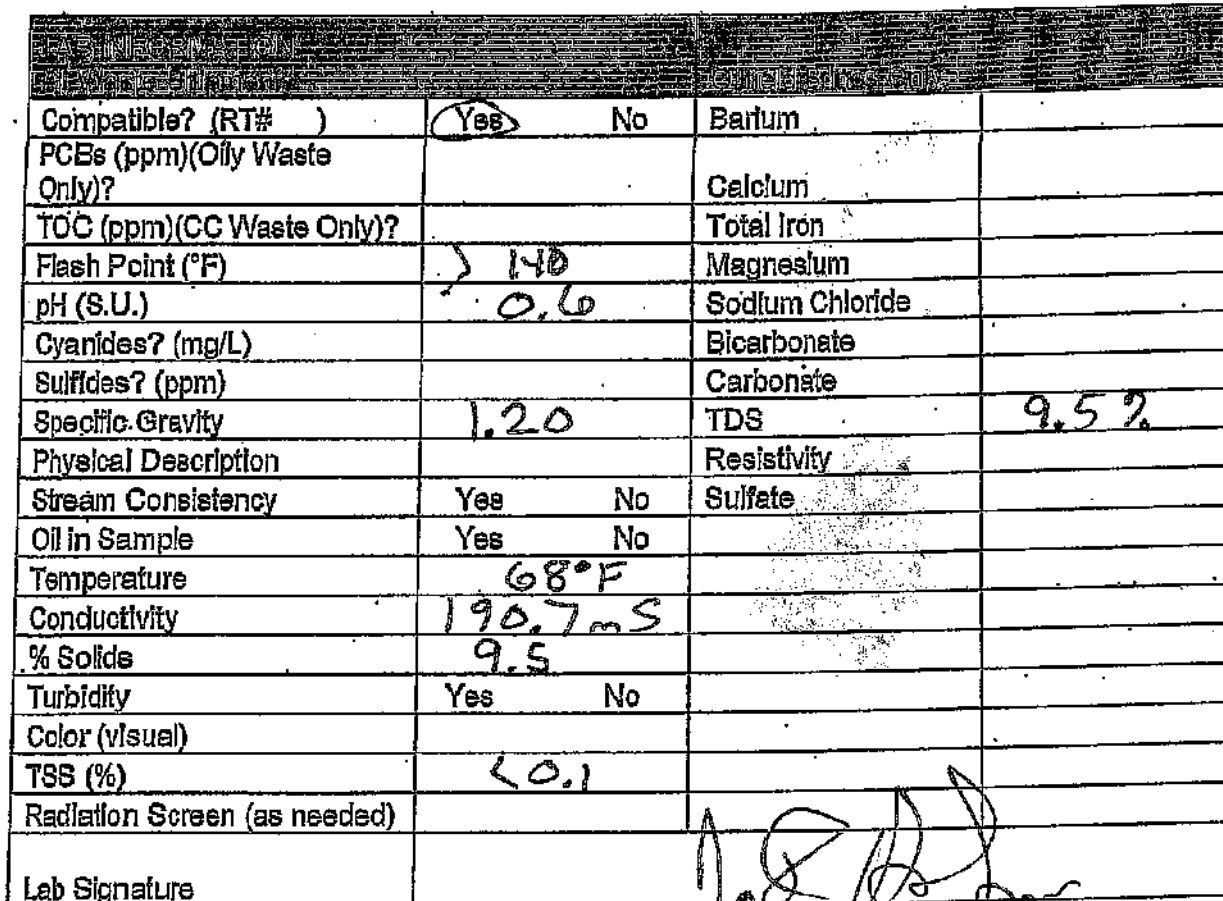 LAB INFORMATION
Compatible? (RT# ) Yes No Barium
PCBs (ppm)(Oily Waste
Only)? Calcium
TOC (ppm)(CC Waste Only)? Total Iron
Flash Point (°F) > 140 Magnesium
pH (S.U.) 0.6 Sodium Chloride
Cyanides? (mg/L) Bicarbonate
Sulfides? (ppm) Carbonate
Specific Gravity 1.20 TDS 9.5%
Physical Description Resistivity
Stream Consistency Yes No Sulfate
Oil in Sample Yes No
Temperature 68°F
Conductivity 190.7 mS
% Solids 9.5
Turbidity Yes No
Color (visual)
TSS (%) <0.1
Radiation Screen (as needed)
Lab Signature